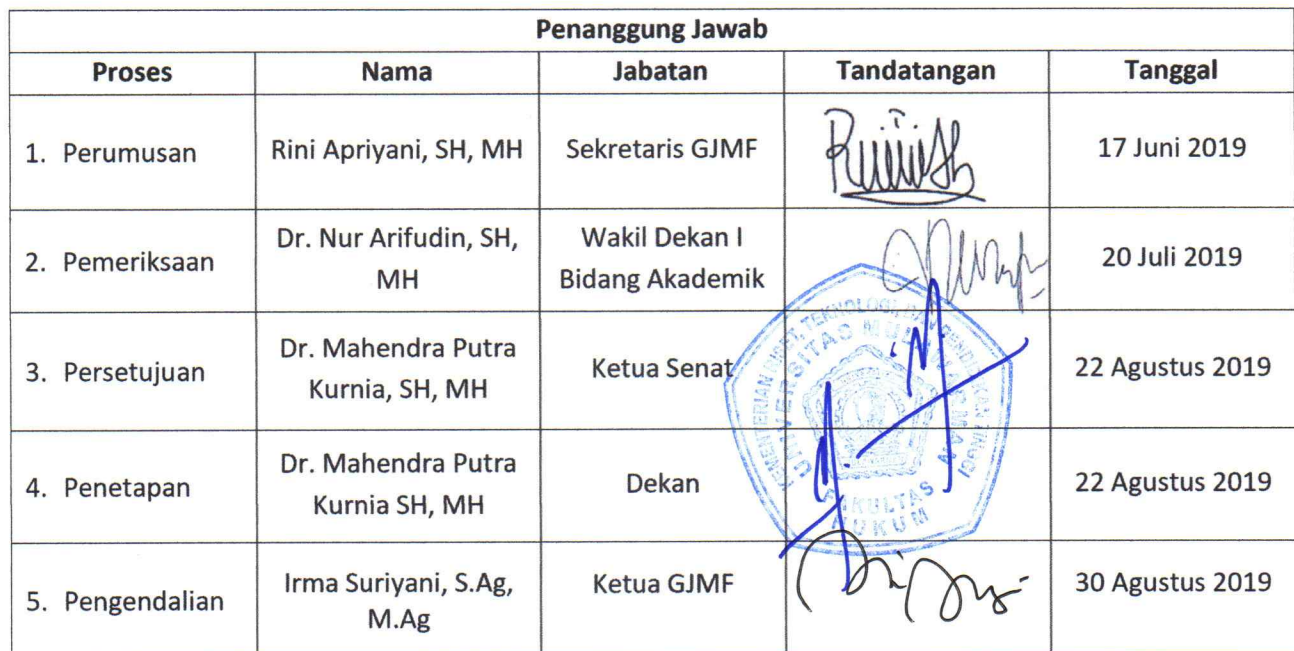 Penanggung Jawab
Proses Nama Jabatan Tandatangan Tanggal
1. Perumusan Rini Apriyani, SH, MH Sekretaris GJMF 17 Juni 2019
2. Pemeriksaan Dr. Nur Arifudin, SH, MH Wakil Dekan I Bidang Akademik 20 Juli 2019
3. Persetujuan Dr. Mahendra Putra Kurnia, SH, MH Ketua Senat 22 Agustus 2019
4. Penetapan Dr. Mahendra Putra Kurnia SH, MH Dekan 22 Agustus 2019
5. Pengendalian Irma Suriyani, S.Ag, M.Ag Ketua GJMF 30 Agustus 2019
UNIVERSITAS
FAKULTAS
HUKUM